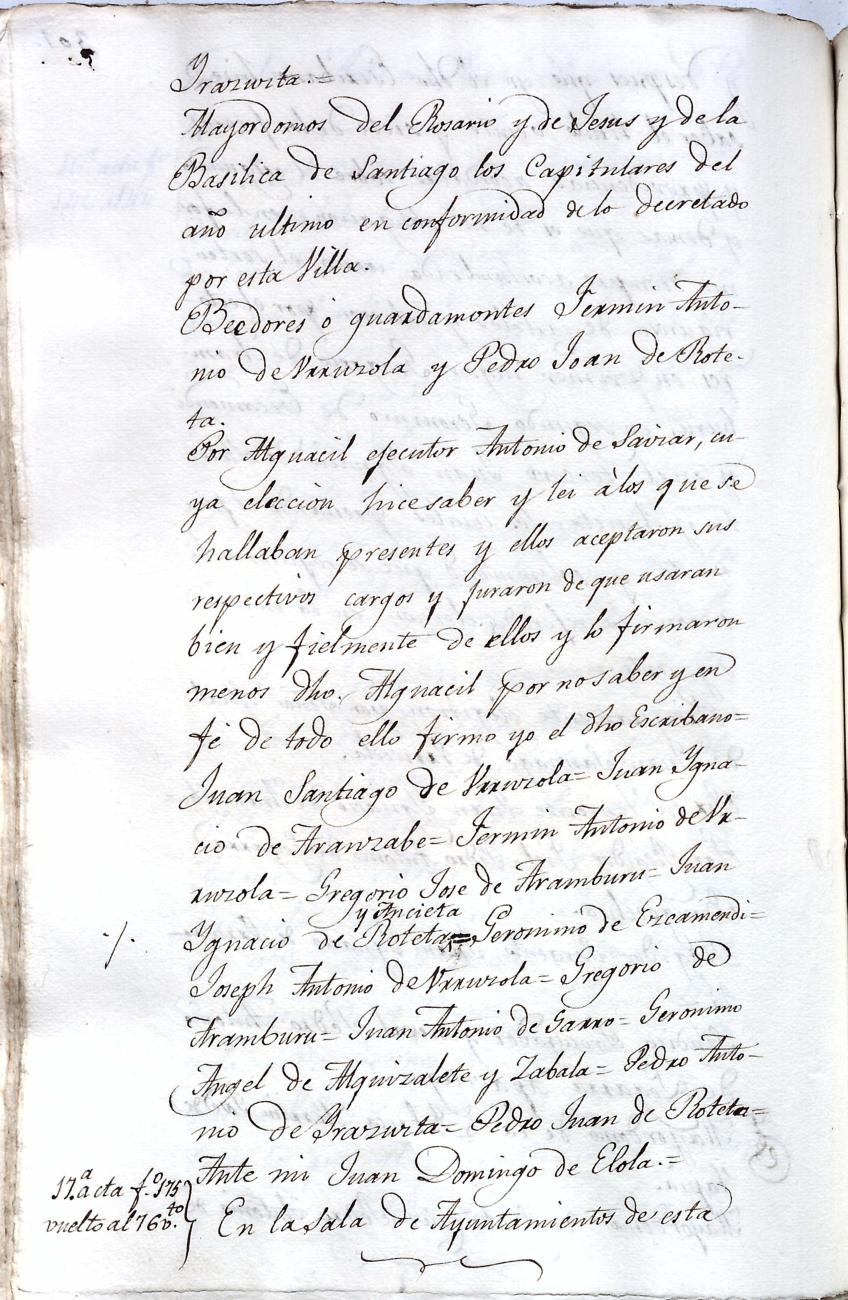 Yrazuzta.=
Mayordomos del Rosario y de Jesus y de la
Basilica de Santiago los Capitulares del
año ultimo en conformidad de lo decretado
por esta Villa.
Beedores ò guardamontes Fermin Anto-
nio de Urruzola y Pedro Joan de Rote-
ta.
Por Alguacil ejecutor Antonio de Saizar, cu-
ya eleccion hice saber y lei à los que se
hallaban presentes y ellos aceptaron sus
respectivos cargos y juraron de que usaran
bien y fielmente de ellos y lo firmaron
menos dho. Alguacil por no saber y en
fé de todo ello firmo yo el dho Escribano=
Juan Santiago de Urruzola= Juan Ygna-
cio de Aranzabe= Fermin Antonio de Ur-
ruzola= Gregorio Jose de Aramburu= Juan
y Ancieta
Ygnacio de Roteta= Geronimo de Ezcamendi=
Joseph Antonio de Urruzola= Gregorio de
Aramburu= Juan Antonio de Sarro= Geronimo
Angel de Alquizalete y Zabala= Pedro Anto-
nio de Yrazuzta= Pedro Juan de Roteta=
Ante mi Juan Domingo de Elola.=
17.ª acta f.º 175
vuelto al 76 v.to
En la Sala de Ayuntamientos de esta